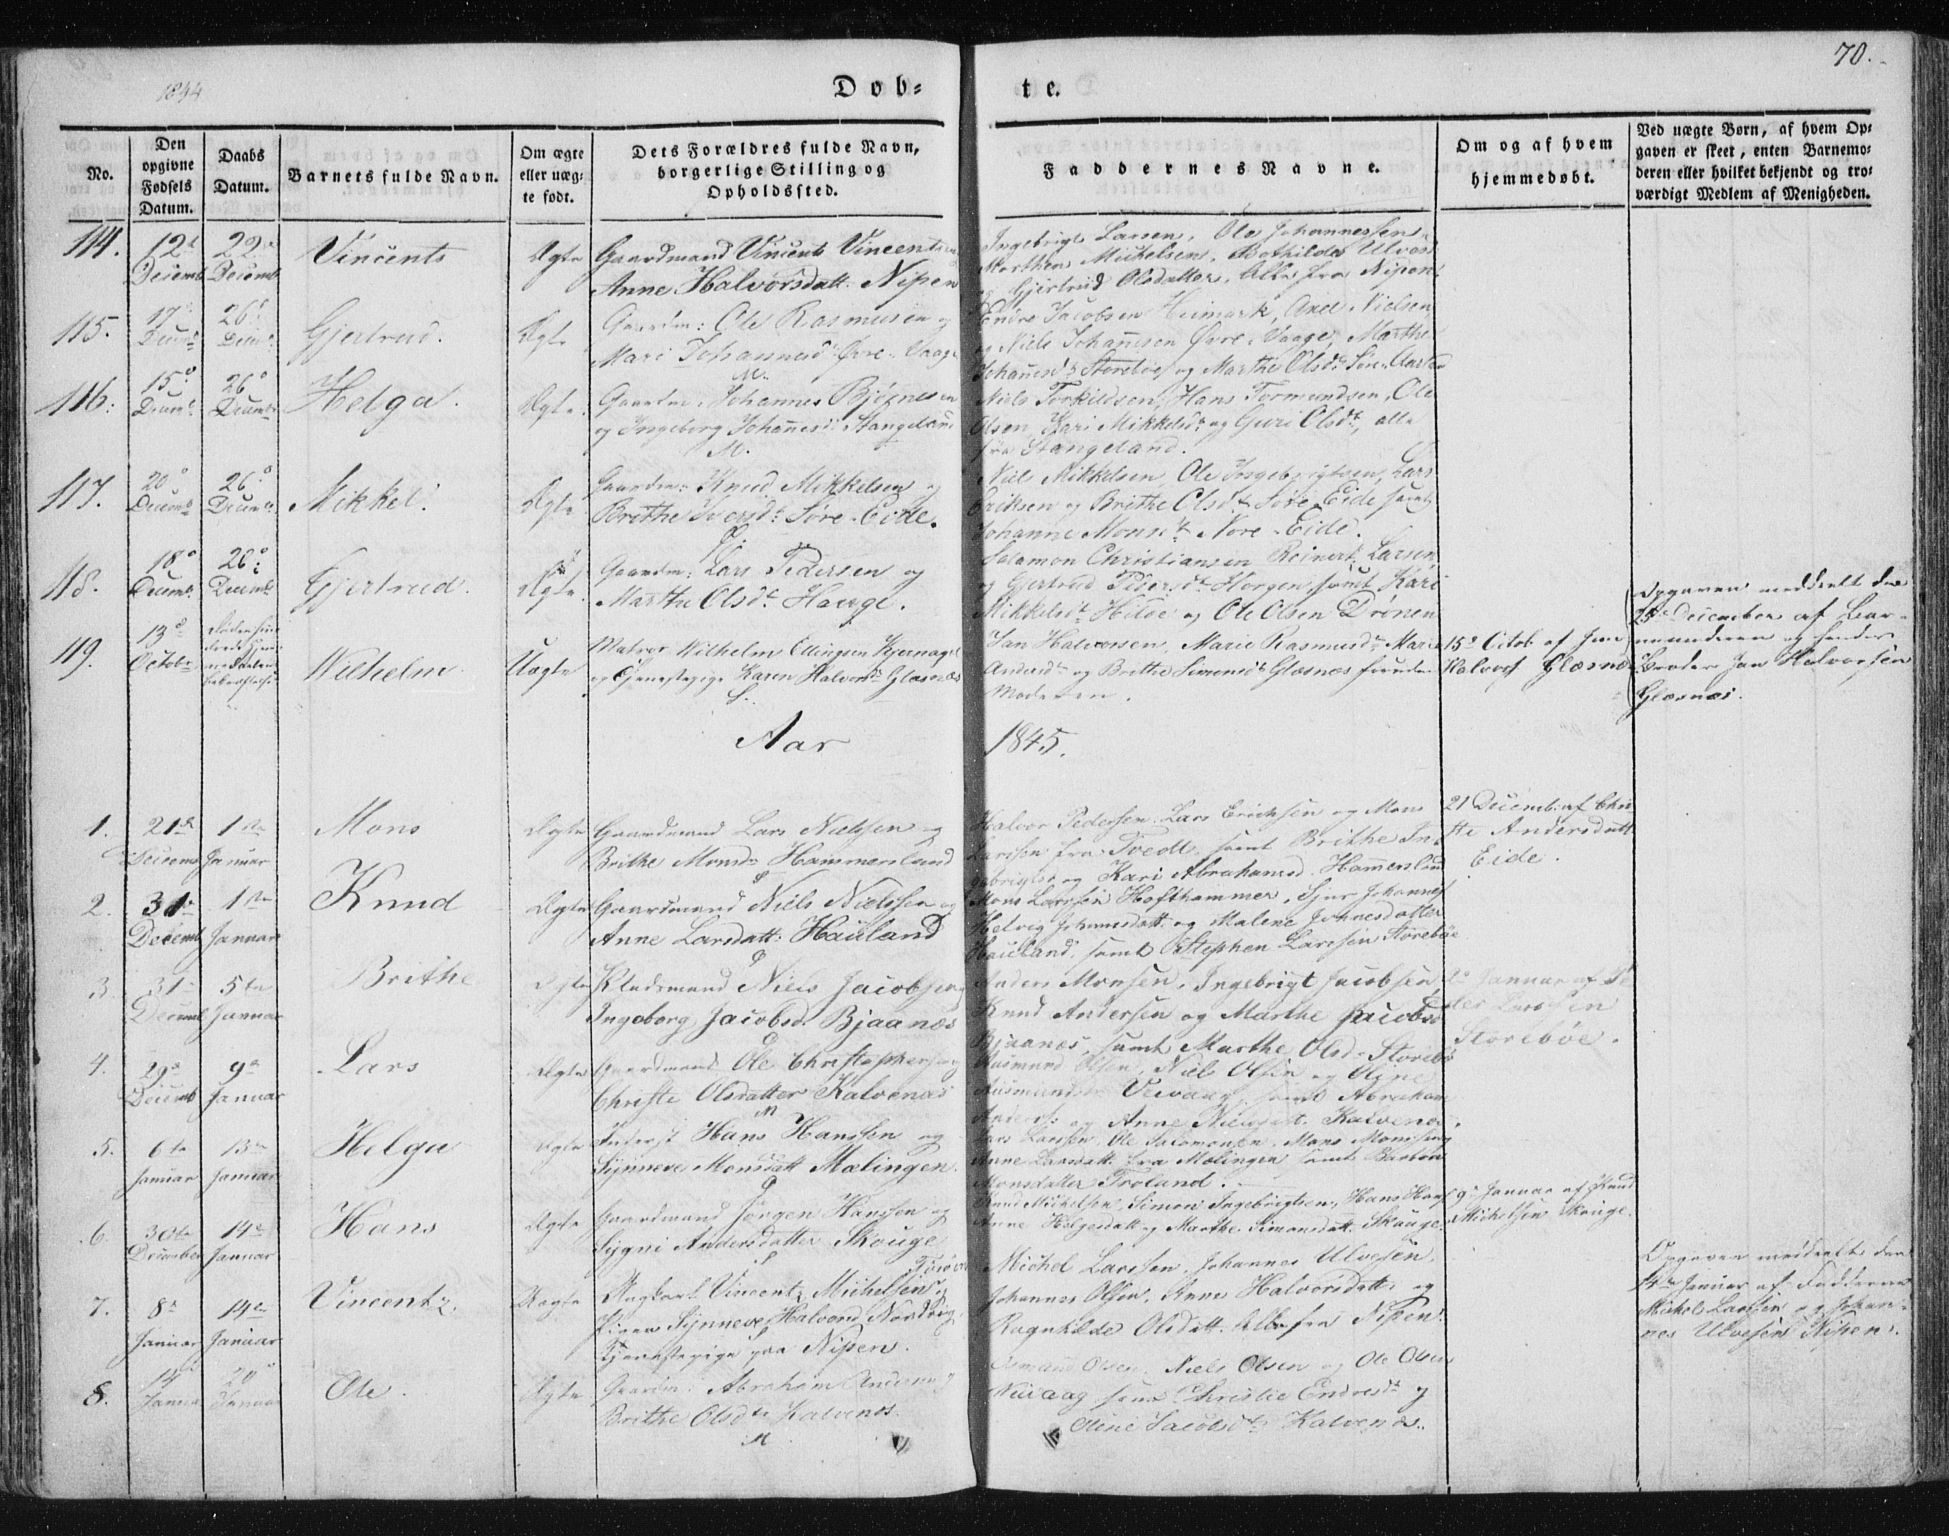 70.
1844
Døb=
te.
No.
Den opgivne Fødsels Datum.
Daabs Datum.
Barnets fulde Navn.
Om ægte eller uægte født.
Dets Forældres fulde Navn, borgerlige Stilling og Opholdssted.
Faddernes Navne.
Om og af hvem hjemmedøbt.
Ved uægte Børn, af hvem Opgaven er skeet, enten Barnemoderen eller hvilket bekjendt og troværdigt Medlem af Menigheden.
114.
12te Decemb
22de Decemb
Vincents
Ægte
Gaardmand Vincents Vincentsen
Anne Halvorsdatt. Nipen
Ingebrigt Larsen, Ole Johannessen,
Morthen Michelsen, Bothilde Ulves
og Gjertrud Olsdatter, alle fra Nipen
115.
17de Decemb
26de Decemb
Gjertrud.
Ægte
Gaardm: Ole Rasmusen og
Mari Johannesd. Øvre-Vaage
M.
Endre Jacobsen Heimark, Axel Nielsen
og Niels Johannesen Øvre-Vaage, Marthe
Johannesdt Storebøe og Marthe Olsdt
116.
15de Decemb.
26de Decemb
Helga.
Ægte
Gaardm. Johannes Bjørnesen
og Ingeborg Johannesd. Stangeland
M.
Niels Torkildsen, Hans Tormundsen, Ole
Olsen, Kari Mikkelsdt og Guri Olsdt, alle
fra Stangeland.
117.
20de Decemb
26de Decemb
Mikkel.
Ægte
Gaardm: Knud Mikkelsen og
Brithe Iversdt Søre-Eide.
Niels Mikkelsen, Ole Ingebrigtsen, Lars
Eriksen og Brithe Olsdt Søre Eide samt
Johanne Monsdt Nore-Eide.
118.
18de Decemb.
26de Decemb
Gjertrud.
Ægte
Gaardm: Lars Pedersen og
Marthe Olsdt Hauge.
Salamon Christiansen Reinert Larsen
og Gjertrud Pedersdt Horgen, samt Kari
Mikkelsdt Hiløe og Ole Olsen Drønen
119.
13de Octobr
Wilhelm
Uægte
Matros Wilhelm Ellingsen Kjernagel
og Tjenestepige Karen Halvorsdt Glæsnæs
Jan Halvorsen, Marie Rasmusdt Marie
Andersdt og Brithe Simonsdt Glæsnæs foruden
Moderen.
15de Octob af Jan
Halvors Glæsnæs
Opgaven meddeelt den
25de December af Bar-
nemoderen og hendes
Broder Jan Halvorsen
Glæsnæs.
Aar
1845.
1.
21de Decemb
1ste Januar
Mons
Ægte
Gaardmand Lars Nielssen og
Brithe Monsdr Hammersland
Halvor Pedersen Lars Erichsen og Mons
Larssen fra Tvedt samt Brithe In-
gebrigtsd og Kari Abrahamsd. Hammersland
21 Decemb. af Chri-
sti Andersdatt
Eide.
2.
31te Decemb
1ste Januar
Knud
Ægte
Gaardmand Niels Nielssen og
Anne Larsdatt. Hauland
Mons Larssen Hofthammer, Sjur Johannes
Helvig Johannesdatt. og Malene Johnesdatter
Hauland, samt Stephen Larssen Storebøe
3.
31te Decemb
5te Januar
Brithe
Ægte
Pladsmand Niels Jacobsen og
Ingeborg Jacobsd. Bjaanæs
Anders Monsen, Ingebrigt Jacobsen
Knud Andersen og Marthe Jacobsd
Bjaanæs, samt Marthe Olsd. Storebø
2de Januar af Pe-
der Larssen
Storebøe.
4.
29de Decemb
9de Januar
Lars
Ægte
Gaardmand Ole Christophersen og
Christi Olsdatter Kalvenæs
M
Ausmund Olsen, Niels Olsen og Oline
Ausmunds Veivaag, samt Abraham
Anders. og Anne Nielsdatt. Kalvenæs.
5.
6te Januar
13de Januar
Helga
Ægte
Inderst Hans Hanssen og
Synneve Monsdatt Mælingen.
Lars Larssen, Ole Salomonsen, Mons Monssen
Anne Larsdatt. fra Mælingen samt Barbro
Monsdatter Troland.
6.
30te December
14de Januar
Hans
Ægte
Gaardmand Jørgen Hanssen og
Sygni Andersdatter Skouge
Knud Michelsen, Simon Ingebrigtsen, Hans Hans
Anne Helgesdatt og Marthe Simonsdatt. Skauge.
9de Januar af Knud
Michelsen Skouge.
7.
8de Januar
14de Januar
Vincentz.
Uægte
Ungkarl Vincentz Michelsen
Pigen Synneve Halvorsd Nordvig
Tjenestepige paa Nipen.
Michel Larssen, Johannes Ulvesen,
Johannes Olsen, Anne Halvorsdatt. og
Ragnhilde Olsdatt. Alle fra Nipen.
Opgaven meddeelt den
14de Januar af Fadderne
Michel Larssen og Johan-
nes Ulvesen Nipen.
8.
14de Januar
20de Januar
Ole.
Ægte
Gaardm. Abraham Andersen og
Brithe Olsdtr Kalvenæs.
M
Asmund Olsen, Niels Olsen og Ole Olsen
Veivaag samt Christie Endresdt og
Oline Jacobsdtr Kalvenæs.